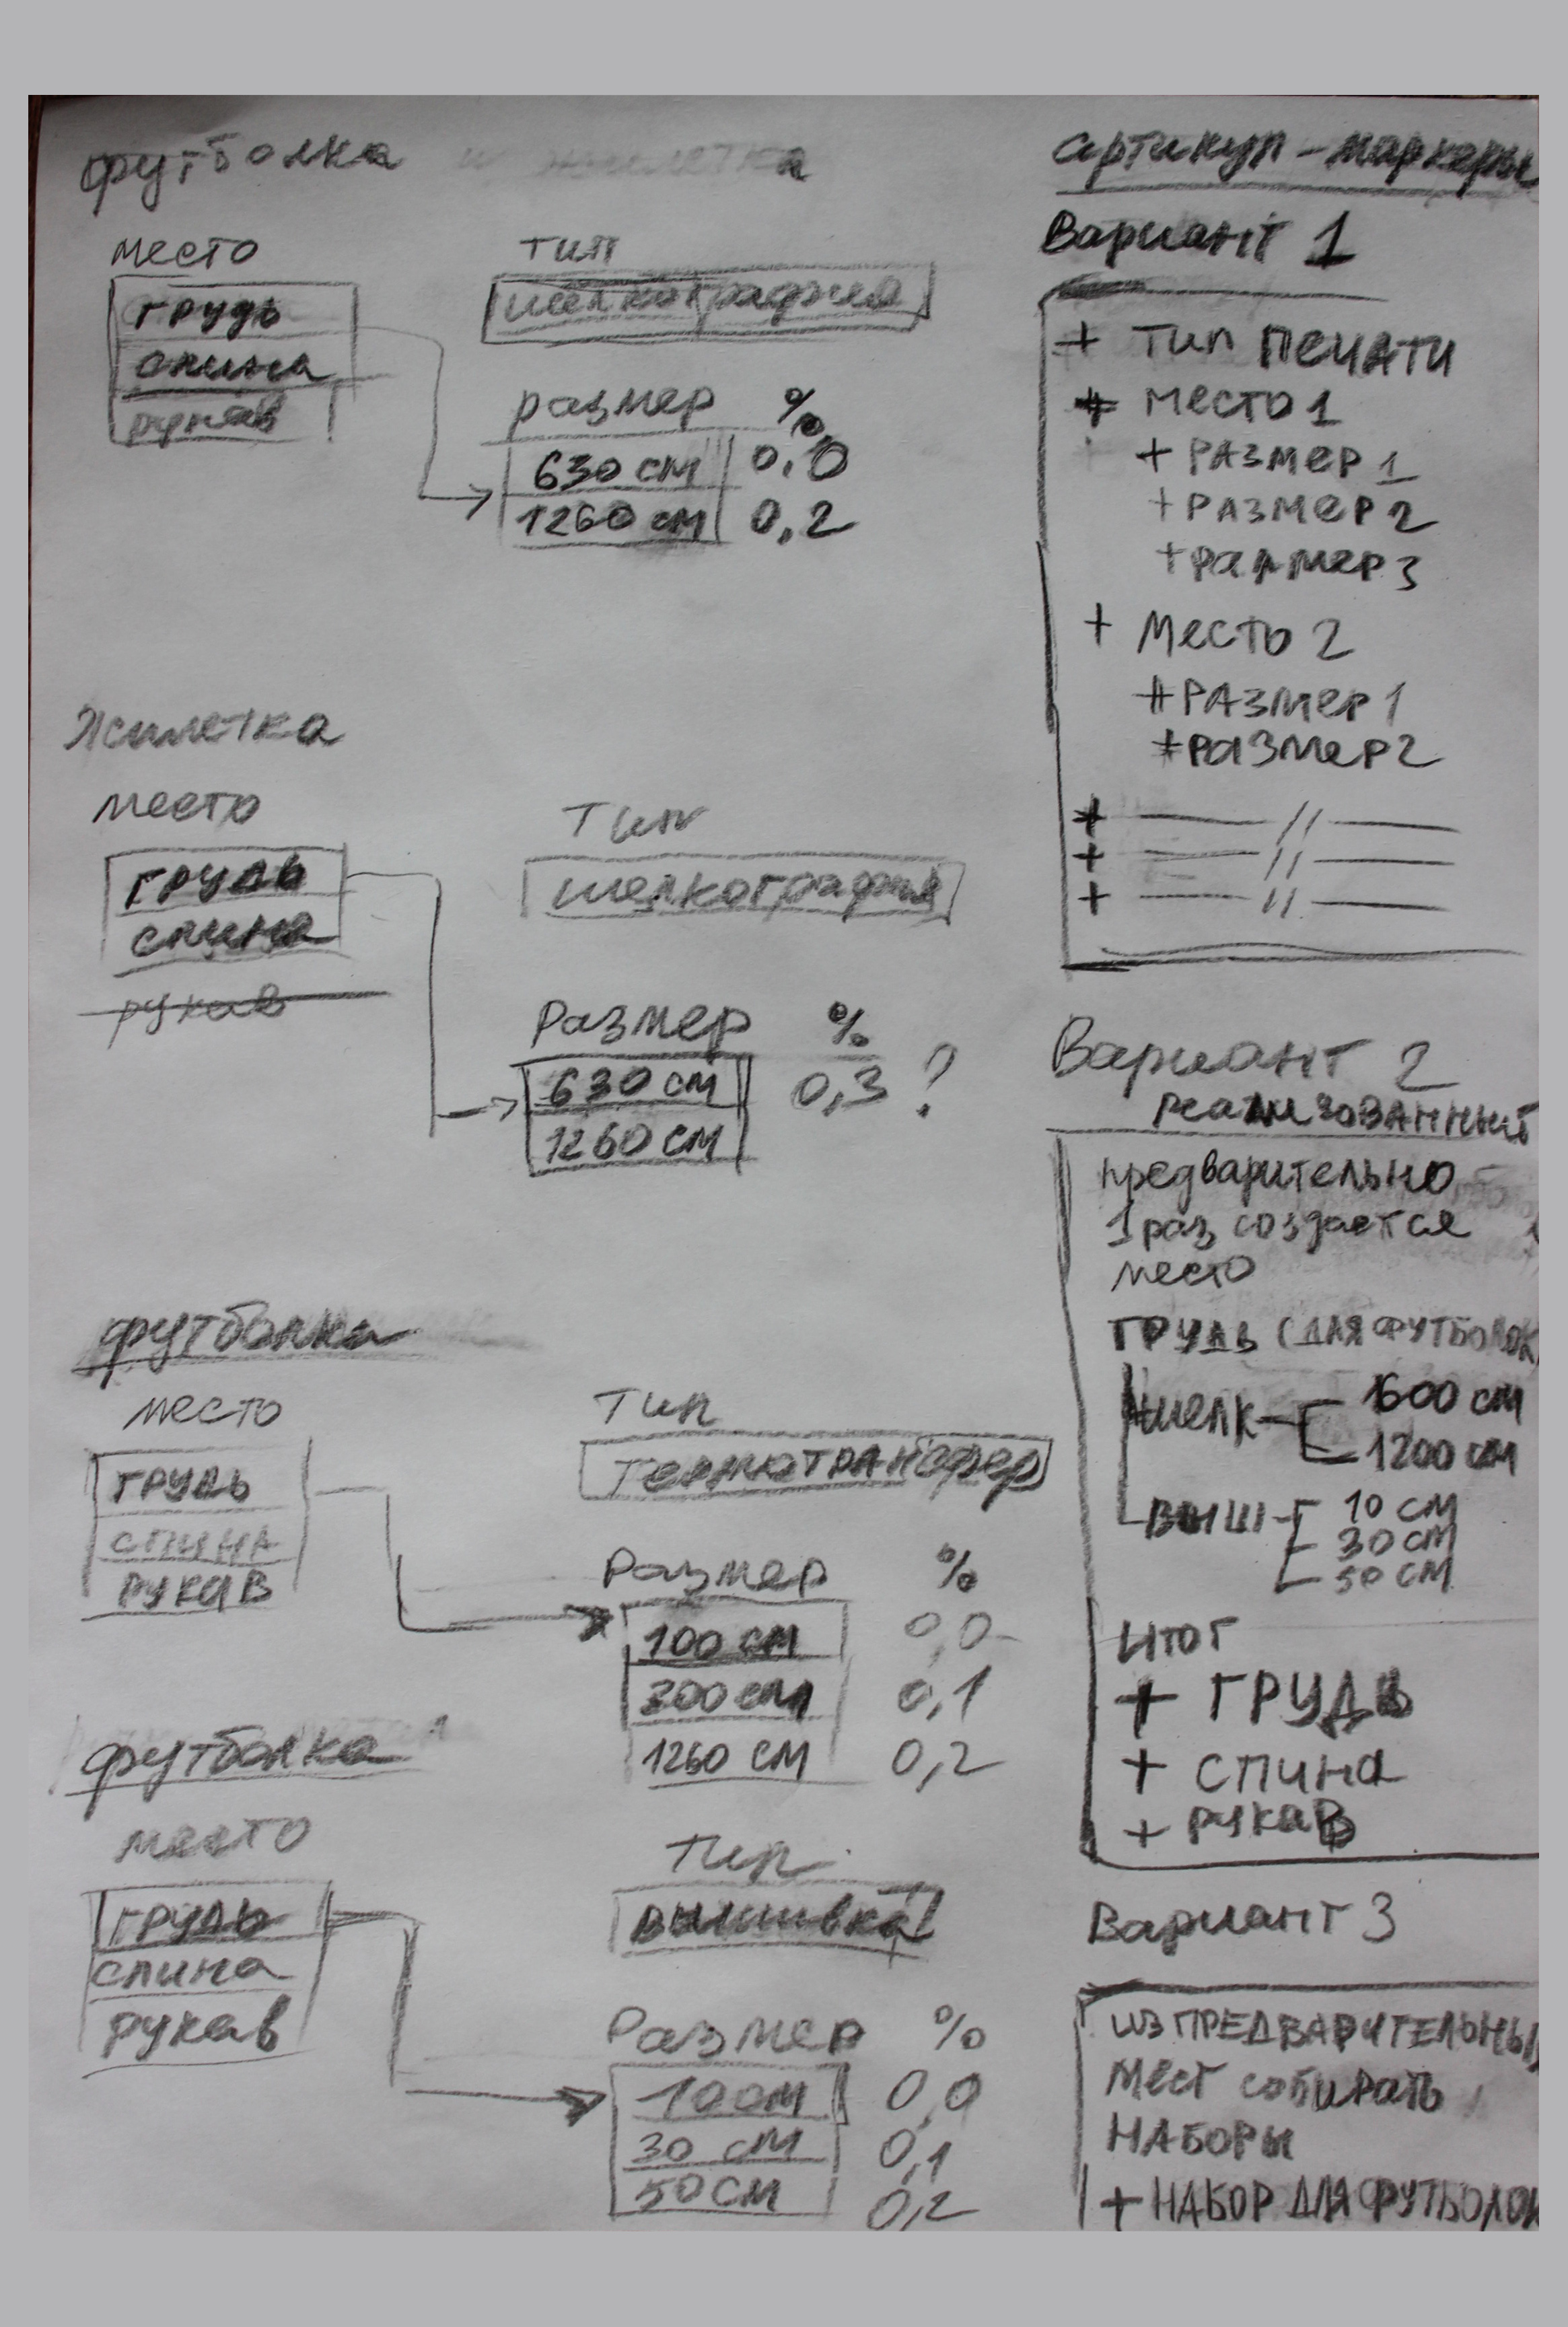 футболка
место
грудь
спина
рукав
тип
шелкография
размер %
630 см 0,0
1260 см 0,2
Жилетка
место
грудь
спина
рукав
Тип
шелкография
Размер %
630 см 0,3 ?
1260 см
футболка
место
грудь
спина
рукав
Тип
термотрансфер
Размер %
100 см 0,0
300 см 0,1
1260 см 0,2
футболка
место
грудь
спина
рукав
Тип
вышивка
Размер %
10 см 0,0
30 см 0,1
50 см 0,2
артикул - маркеры
Вариант 1
+ Тип ПЕЧАТИ
+ Место 1
+ РАЗМЕР 1
+ РАЗМЕР 2
+ размер 3
+ Место 2
+ РАЗМЕР 1
+ РАЗМЕР 2
+ — // —
+ — // —
+ — // —
Вариант 2
реализованный
предварительно
1 раз создается
место
ГРУДЬ (ДЛЯ ФУТБОЛОК)
шелк 1600 см
1200 см
ВЫШ 10 см
30 см
50 см
Итог
+ ГРУДЬ
+ СПИНА
+ РУКАВ
Вариант 3
ИЗ ПРЕДВАРИТЕЛЬНЫ
Мест собирать
НАБОРЫ
+ НАБОР ДЛЯ ФУТБОЛОК